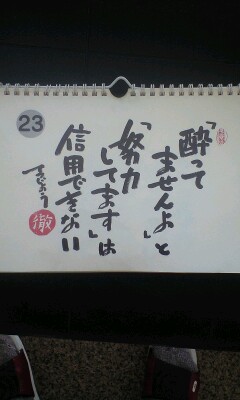 23
「酔って
ませんよ」と
「努力
してます」は
信用できない
てつろう
徹